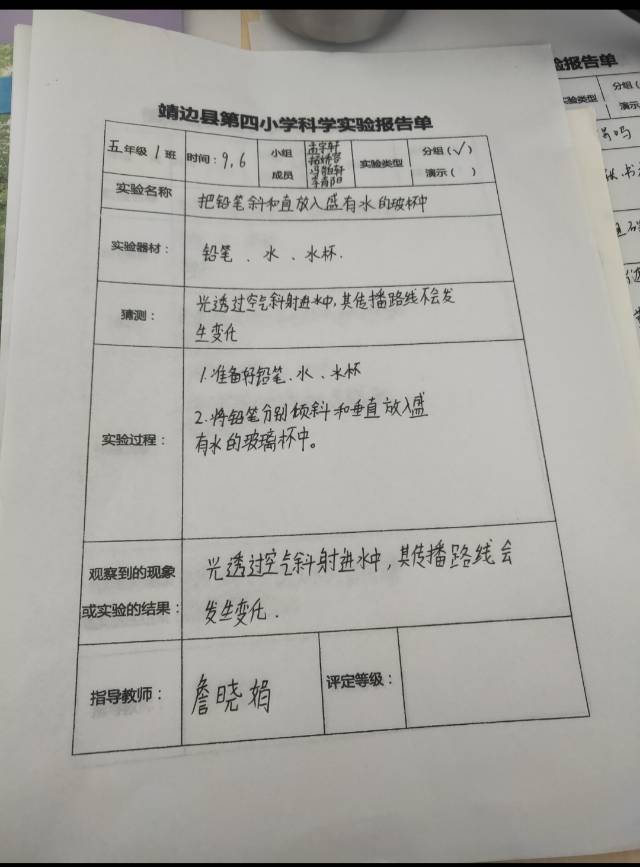 靖边县第四小学科学实验报告单
五年级 1 班 时间：9.6 小组成员 实验类型 分组（√） 演示（ ）
实验名称 把铅笔斜和直放入盛有水的玻杯中
实验器材： 铅笔、水、水杯.
猜测： 光透过空气斜射进水中,其传播路线不会发
生变化
实验过程： 1.准备好铅笔、水、水杯
2.将铅笔分别倾斜和垂直放入盛
有水的玻璃杯中。
观察到的现象
或实验的结果： 光透过空气斜射进水中，其传播路线会
发生变化.
指导教师： 詹晓娟 评定等级：
验报告单
实验类型 分组（
演示